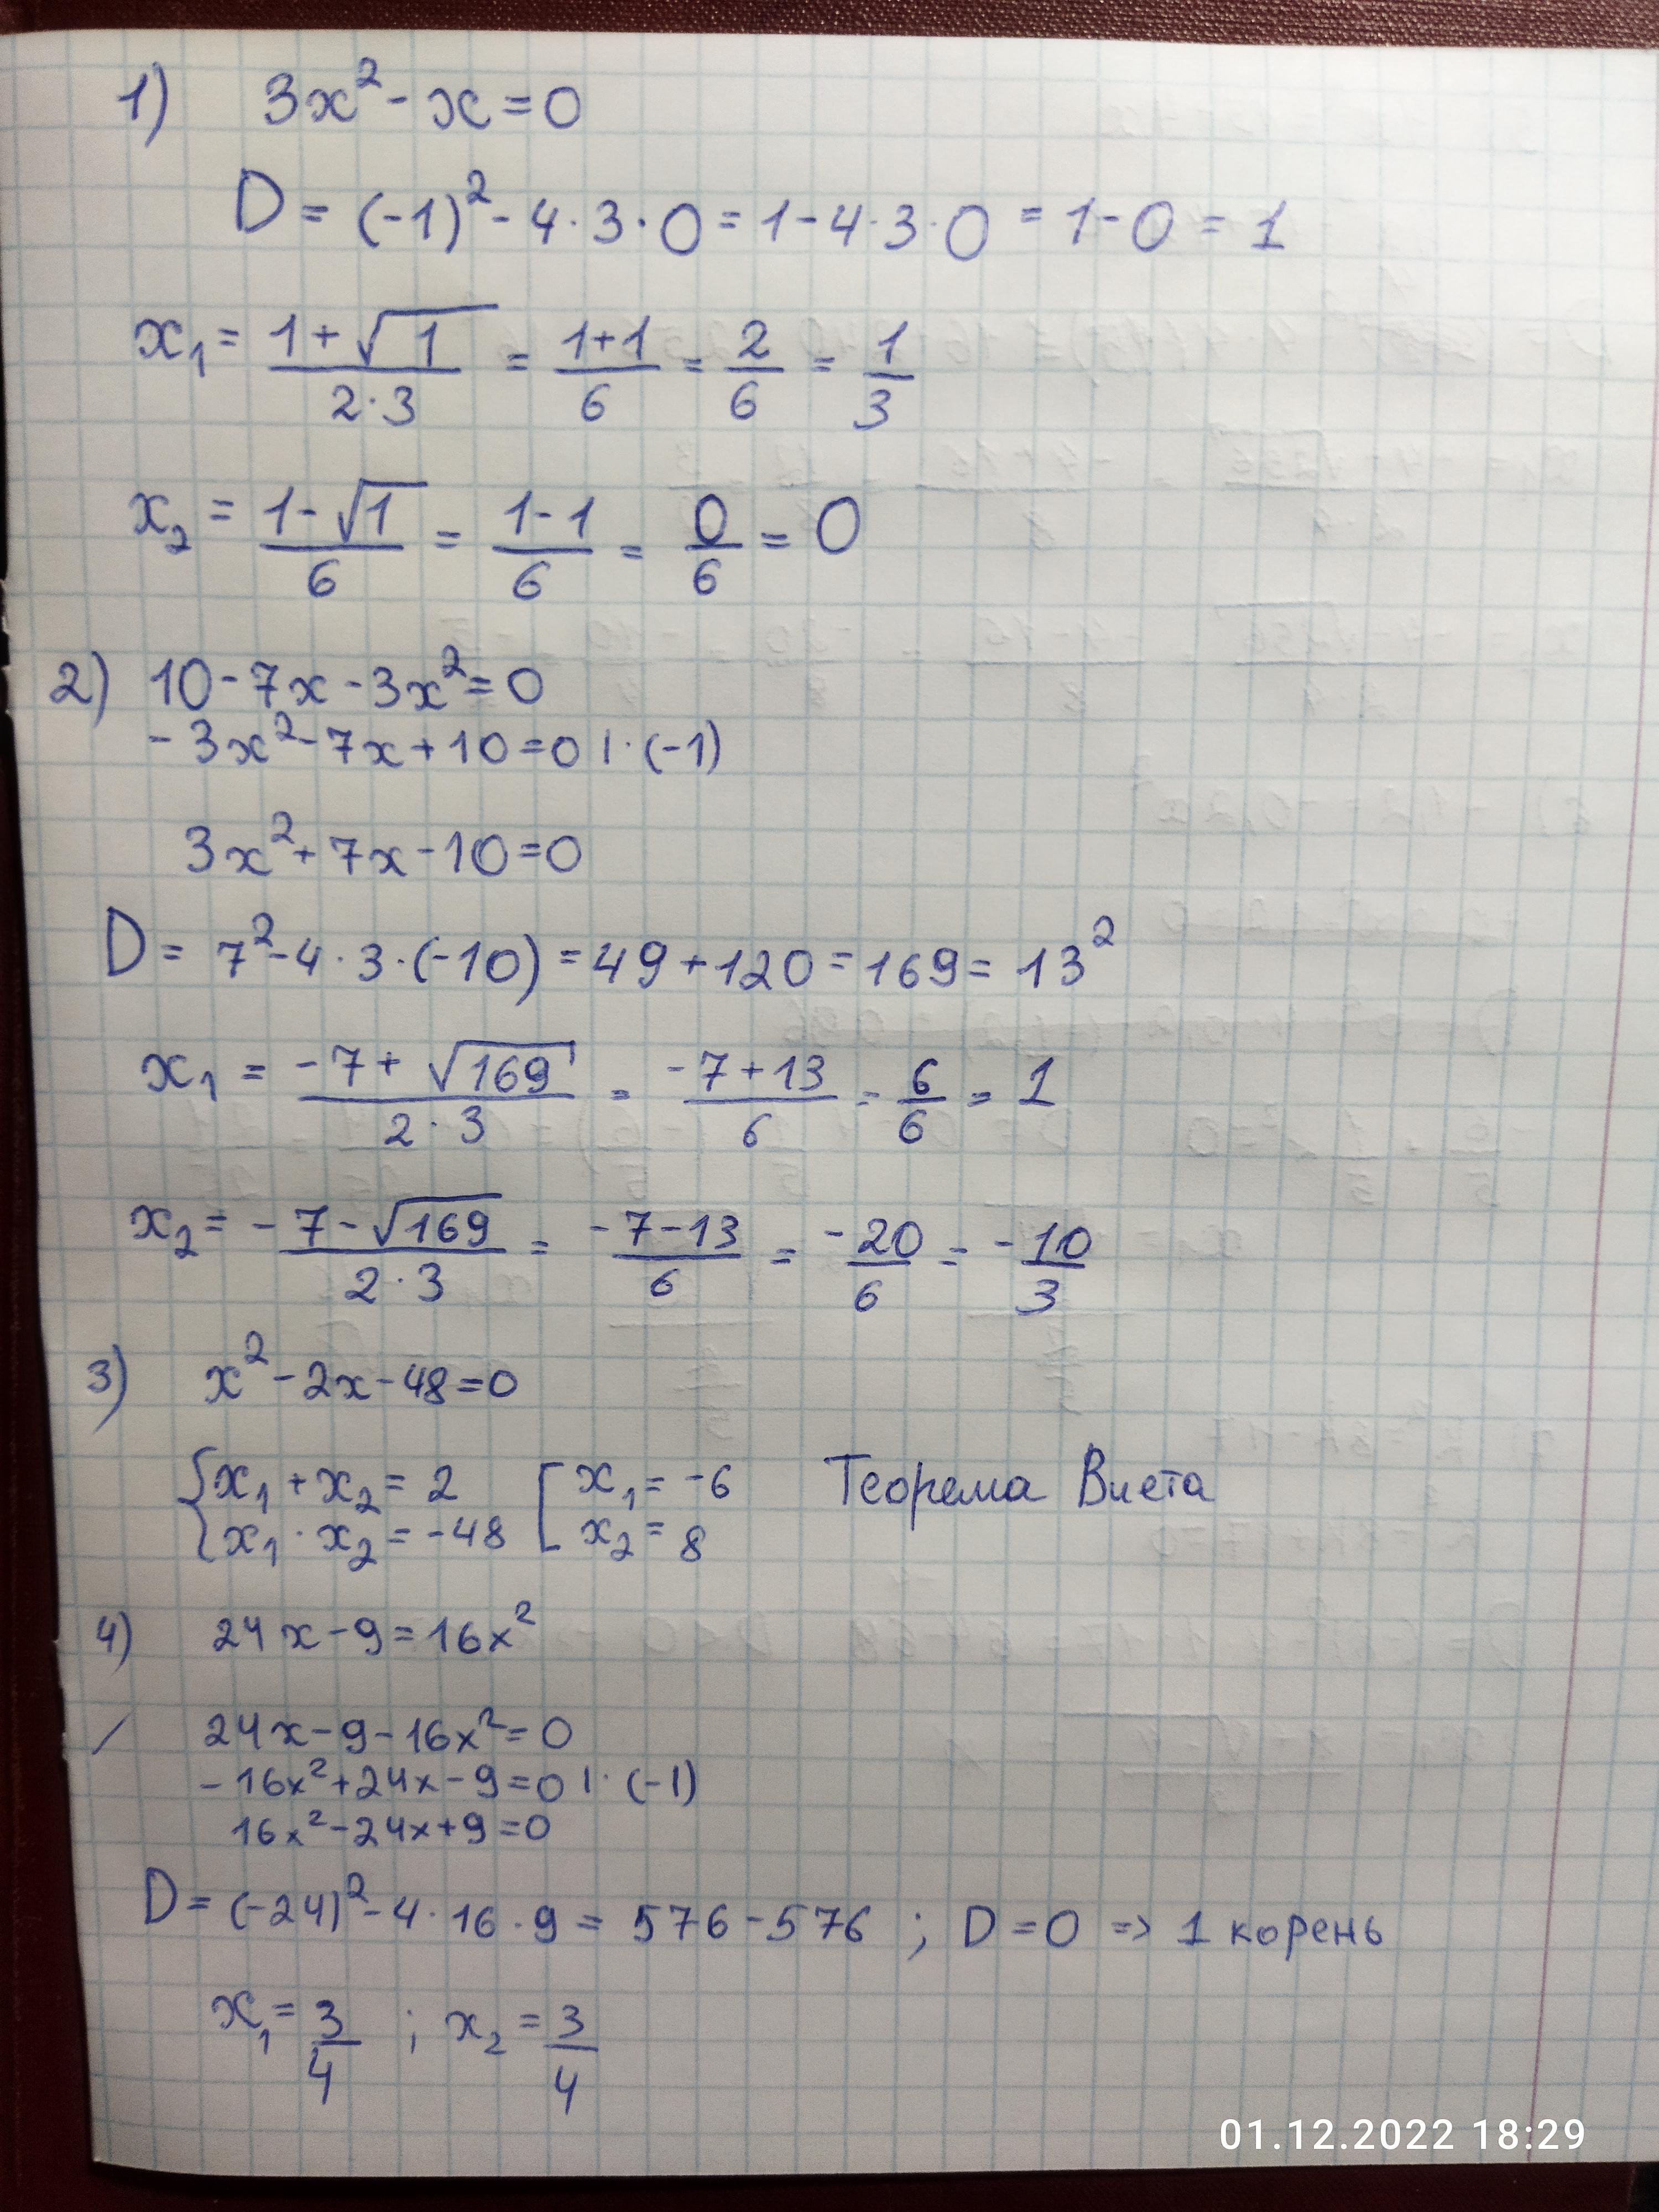 1) 3x² - x = 0
D = (-1)² - 4 · 3 · 0 = 1 - 4 · 3 · 0 = 1 - 0 = 1
x₁ = (1 + √1)/(2 · 3) = (1+1)/6 = 2/6 = 1/3
x₂ = (1 - √1)/6 = (1 - 1)/6 = 0/6 = 0
2) 10 - 7x - 3x² = 0
- 3x² - 7x + 10 = 0 | · (-1)
3x² + 7x - 10 = 0
D = 7² - 4 · 3 · (-10) = 49 + 120 = 169 = 13²
x₁ = (-7 + √169)/(2 · 3) = (-7 + 13)/6 = 6/6 = 1
x₂ = (-7 - √169)/(2 · 3) = (-7 - 13)/6 = -20/6 = -10/3
3) x² - 2x - 48 = 0
{ x₁ + x₂ = 2 [ x₁ = -6 Теорема Виета
{ x₁ · x₂ = -48 [ x₂ = 8
4) 24x - 9 = 16x²
24x - 9 - 16x² = 0
- 16x² + 24x - 9 = 0 | · (-1)
16x² - 24x + 9 = 0
D = (-24)² - 4 · 16 · 9 = 576 - 576 ; D = 0 => 1 корень
x₁ = 3/4 ; x₂ = 3/4
01.12.2022 18:29